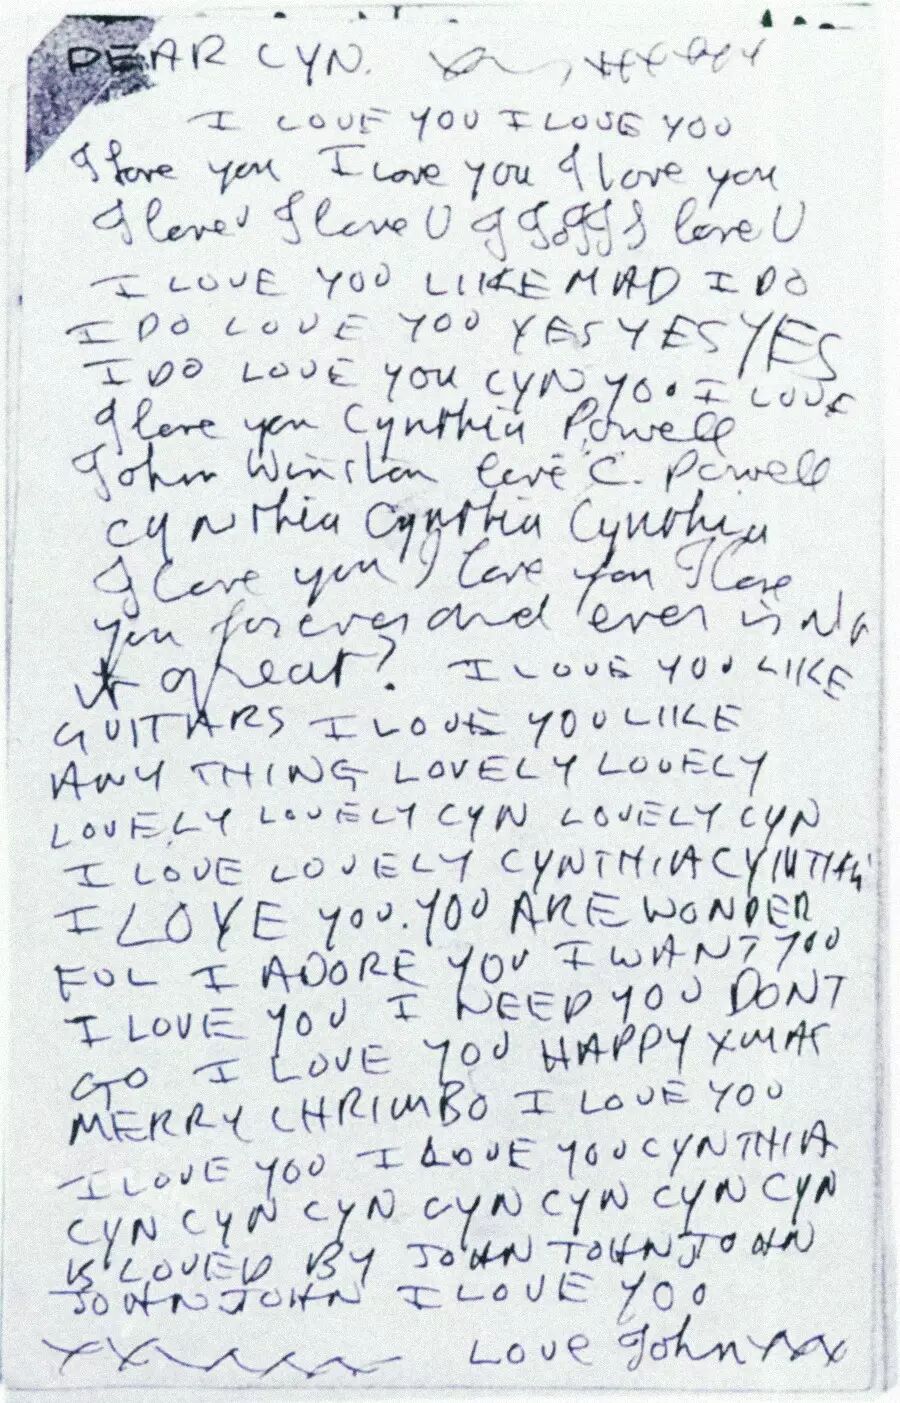 DEAR CYN.
I LOVE YOU I LOVE YOU
I love you I Love you I love you
I love U I love U I I I I I I love U
I LOVE YOU LIKE MAD I DO
I DO LOVE YOU YES YES YES
I DO LOVE YOU CYN YOU I LOVE
I love you Cynthia Powell
John Winston love C. Powell
CYNthia Cynthia Cynthia
I love you I love you I love
you forever and ever isN't
it great? I LOVE YOU LIKE
GUITARS I LOVE YOU LIKE
ANY THING LOVELY LOVELY
LOVELY LOVELY CYN LOVELY CYN
I LOVE LOVELY CYNTHIA CYNTHIA
I LOVE YOU. YOU ARE WONDER
FUL I ADORE YOU I WANT YOU
I LOVE YOU I NEED YOU DONT
GO I LOVE YOU HAPPY XMAS
MERRY CHRIMBO I LOVE YOU
I LOVE YOU I LOVE YOU CYNTHIA
CYN CYN CYN CYN CYN CYN CYN
IS LOVED BY JOHN JOHN JOHN
JOHN JOHN I LOVE YOU
Love John xxx